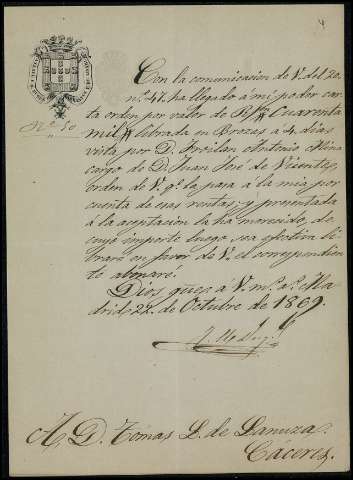 4
Nº 50
Con la comunicacion de V. del 20.
nº 47. ha llegado á mi poder car-
ta orden por valor de R/ Cuarenta
mil librada en Brozas a 4 dias
vista por D. Froilan Antonio Mina
cargo de D. Juan José de Vicentes,
orden de V. q. la para á la mia por
cuenta de esas rentas, y presentada
á la aceptacion la ha merecido, de
cuyo importe luego sea efectivo li-
braré en favor de V. el correspondien-
te abonaré.
Dios gue á V. m. a. Ma-
drid 22 de Octubre de 1869.
A. D. Tomas L. de Lanuza.
Cáceres.